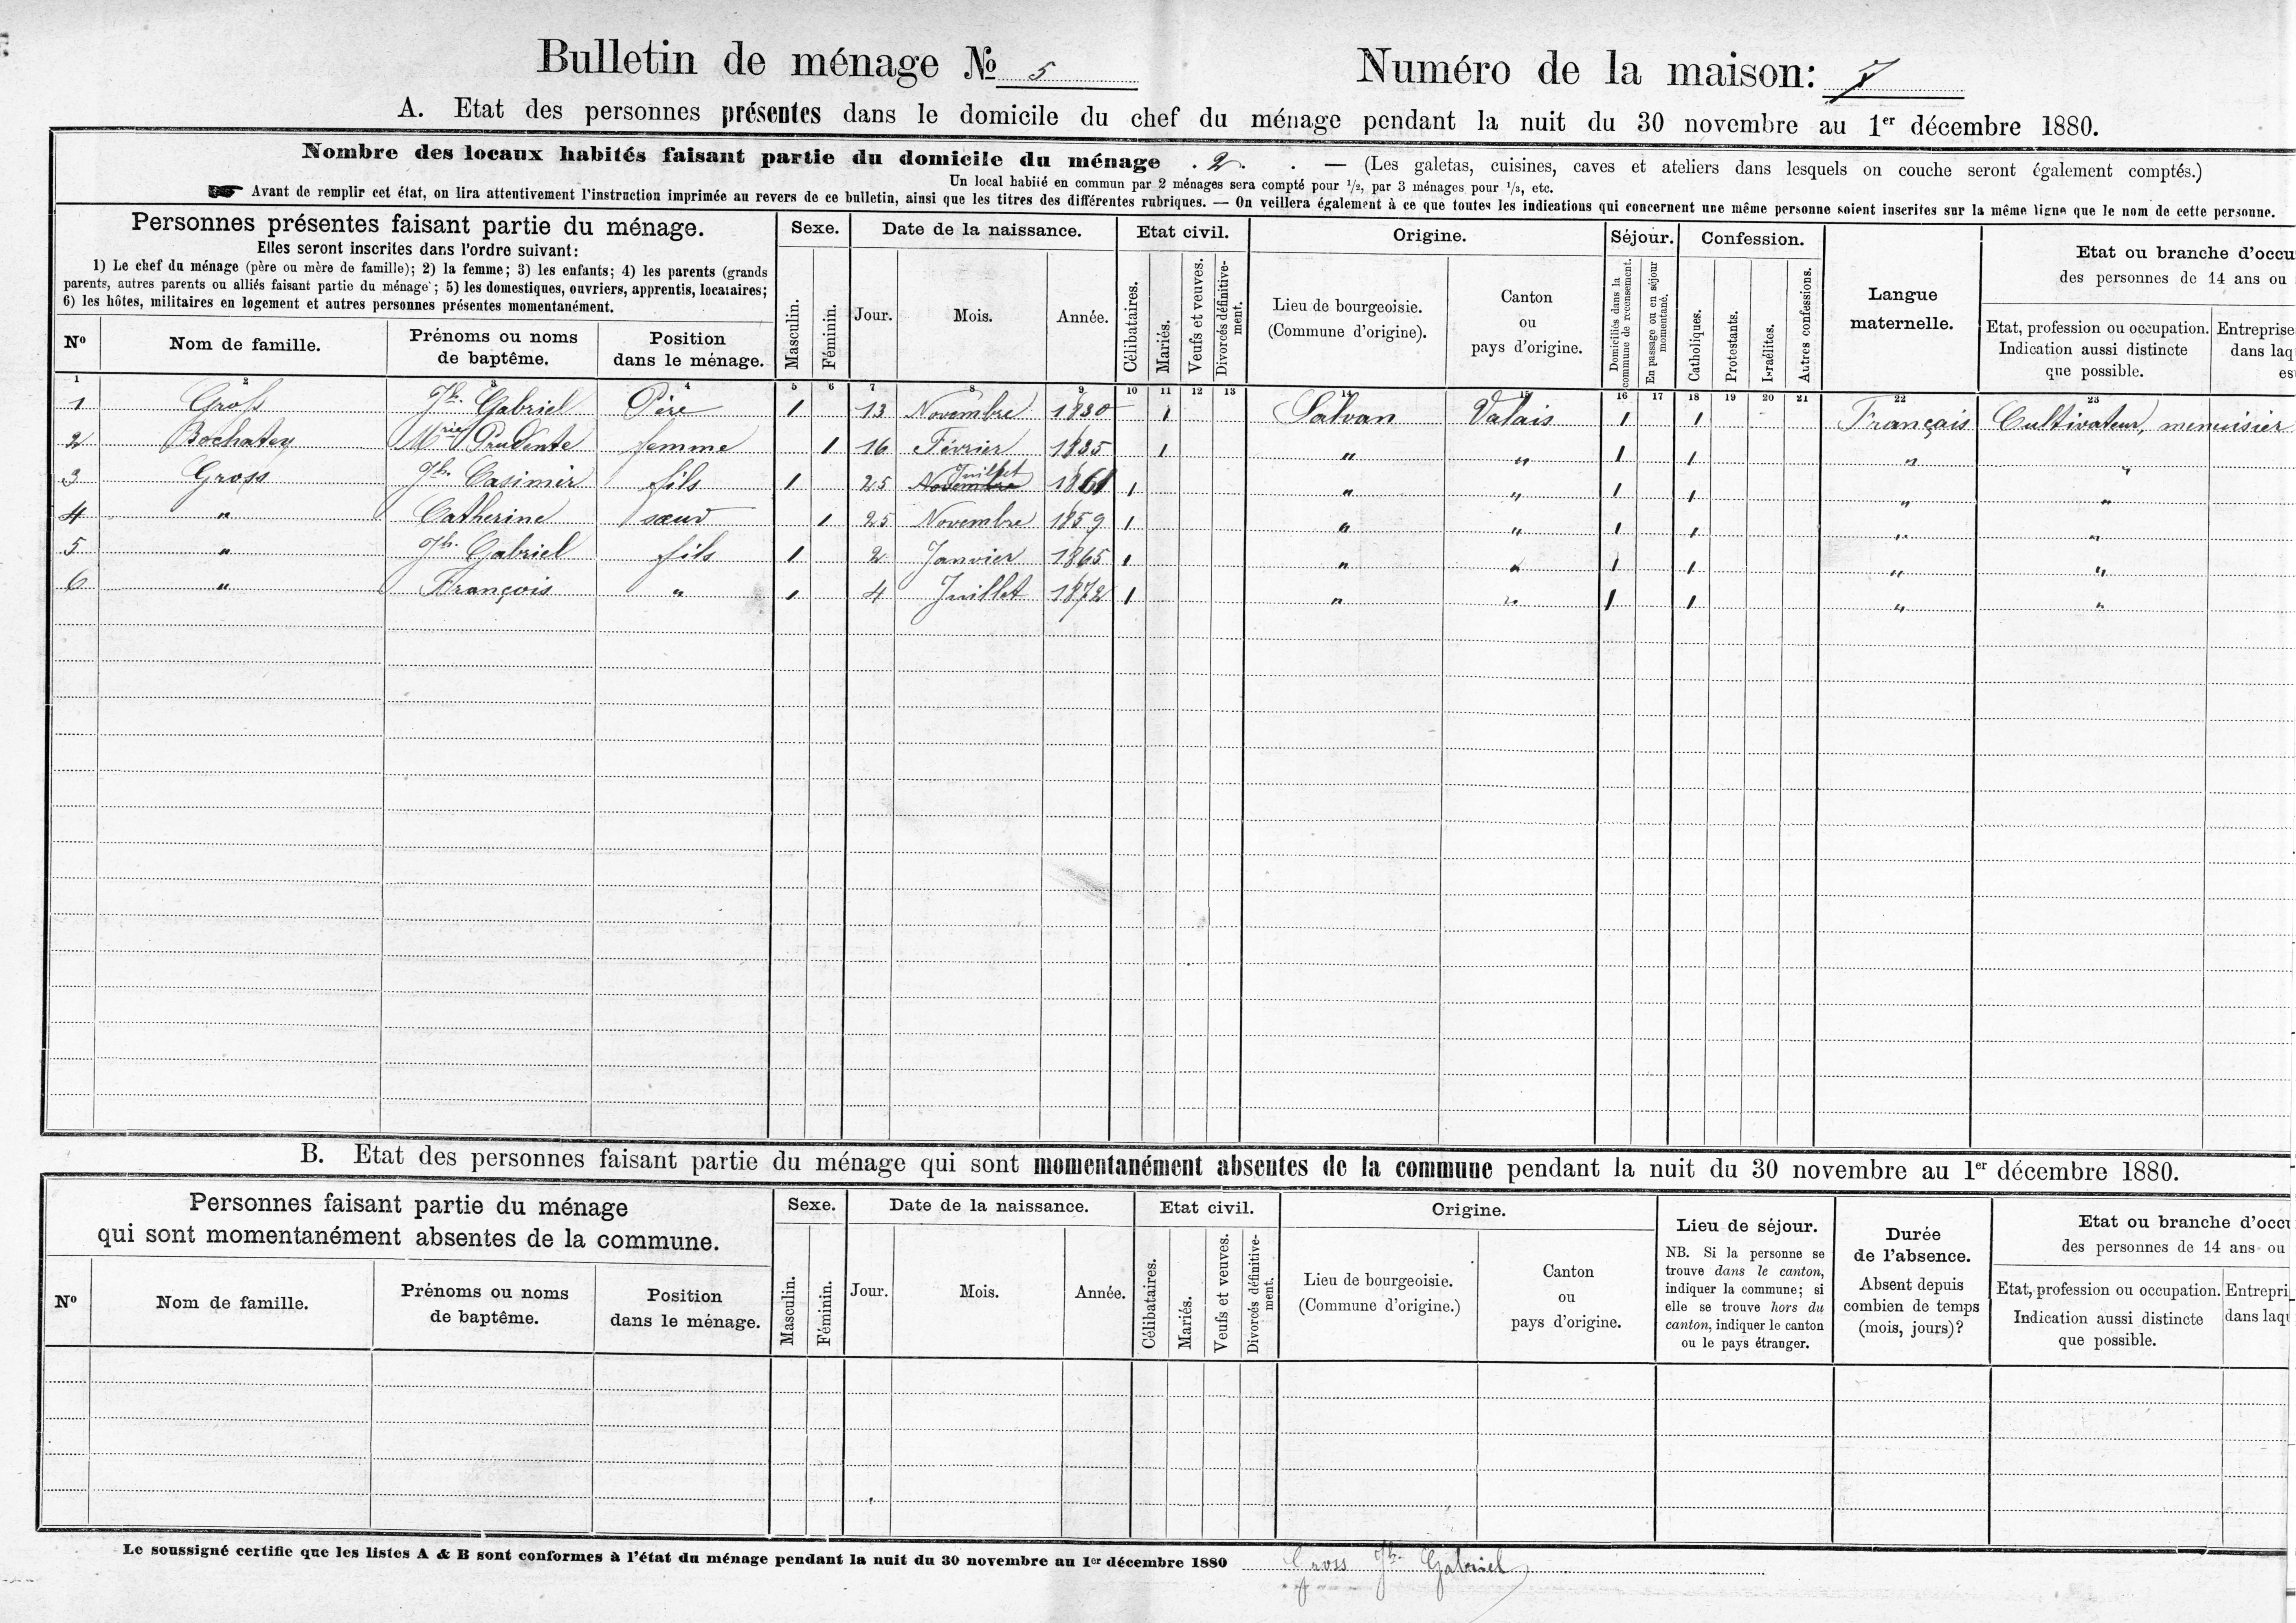 Bulletin de ménage № 5 Numéro de la maison: 7
A. Etat des personnes présentes dans le domicile du chef du ménage pendant la nuit du 30 novembre au 1er décembre 1880.
Nombre des locaux habités faisant partie du domicile du ménage . 2. . — (Les galetas, cuisines, caves et ateliers dans lesquels on couche seront également comptés.)
Un local habité en commun par 2 ménages sera compté pour 1/2, par 3 ménages pour 1/3, etc.
Avant de remplir cet état, on lira attentivement l'instruction imprimée au revers de ce bulletin, ainsi que les titres des différentes rubriques. — On veillera également à ce que toutes les indications qui concernent une même personne soient inscrites sur la même ligne que le nom de cette personne.
Personnes présentes faisant partie du ménage.
Elles seront inscrites dans l'ordre suivant:
1) Le chef du ménage (père ou mère de famille); 2) la femme; 3) les enfants; 4) les parents (grands
parents, autres parents ou alliés faisant partie du ménage; 5) les domestiques, ouvriers, apprentis, locataires;
6) les hôtes, militaires en logement et autres personnes présentes momentanément.
Nº
Nom de famille.
Prénoms ou noms
de baptême.
Position
dans le ménage.
Sexe.
Masculin.
Féminin.
Date de la naissance.
Jour.
Mois.
Année.
Etat civil.
Célibataires.
Mariés.
Veufs et veuves.
Divorcés définitive-
ment.
Origine.
Lieu de bourgeoisie.
(Commune d'origine).
Canton
ou
pays d'origine.
Séjour.
Domiciliés dans la
commune de recensement.
En passage ou en séjour
momentané.
Confession.
Catholiques.
Protestants.
Israélites.
Autres confessions.
Langue
maternelle.
Etat ou branche d'occu
des personnes de 14 ans ou
Etat, profession ou occupation.
Indication aussi distincte
que possible.
Entreprise
dans laq
es
1 2 3 4 5 6 7 8 9 10 11 12 13 14 15 16 17 18 19 20 21 22 23
1 Groß Jh. Gabriel Père 1 13 Novembre 1830 1 Salvan Valais 1 1 Français Cultivateur, menuisier
2 Bochatey Mrie Prudente femme 1 16 Février 1835 1 " " 1 1 " "
3 Gross Jh. Casimir fils 1 25 Novembre Juillet 1861 1 " " 1 1 " "
4 " Catherine sœur 1 25 Novembre 1859 1 " " 1 1 " "
5 " Jh. Gabriel fils 1 2 Janvier 1865 1 " " 1 1 " "
6 " François " 1 4 Juillet 1872 1 " " 1 1 " "
B. Etat des personnes faisant partie du ménage qui sont momentanément absentes de la commune pendant la nuit du 30 novembre au 1er décembre 1880.
Personnes faisant partie du ménage
qui sont momentanément absentes de la commune.
Nº
Nom de famille.
Prénoms ou noms
de baptême.
Position
dans le ménage.
Sexe.
Masculin.
Féminin.
Date de la naissance.
Jour.
Mois.
Année.
Etat civil.
Célibataires.
Mariés.
Veufs et veuves.
Divorcés définitive-
ment.
Origine.
Lieu de bourgeoisie.
(Commune d'origine.)
Canton
ou
pays d'origine.
Lieu de séjour.
NB. Si la personne se
trouve dans le canton,
indiquer la commune; si
elle se trouve hors du
canton, indiquer le canton
ou le pays étranger.
Durée
de l'absence.
Absent depuis
combien de temps
(mois, jours)?
Etat ou branche d'occu
des personnes de 14 ans ou
Etat, profession ou occupation.
Indication aussi distincte
que possible.
Entrepri
dans laqu
Le soussigné certifie que les listes A & B sont conformes à l'état du ménage pendant la nuit du 30 novembre au 1er décembre 1880 Gross Jh. Gabriel